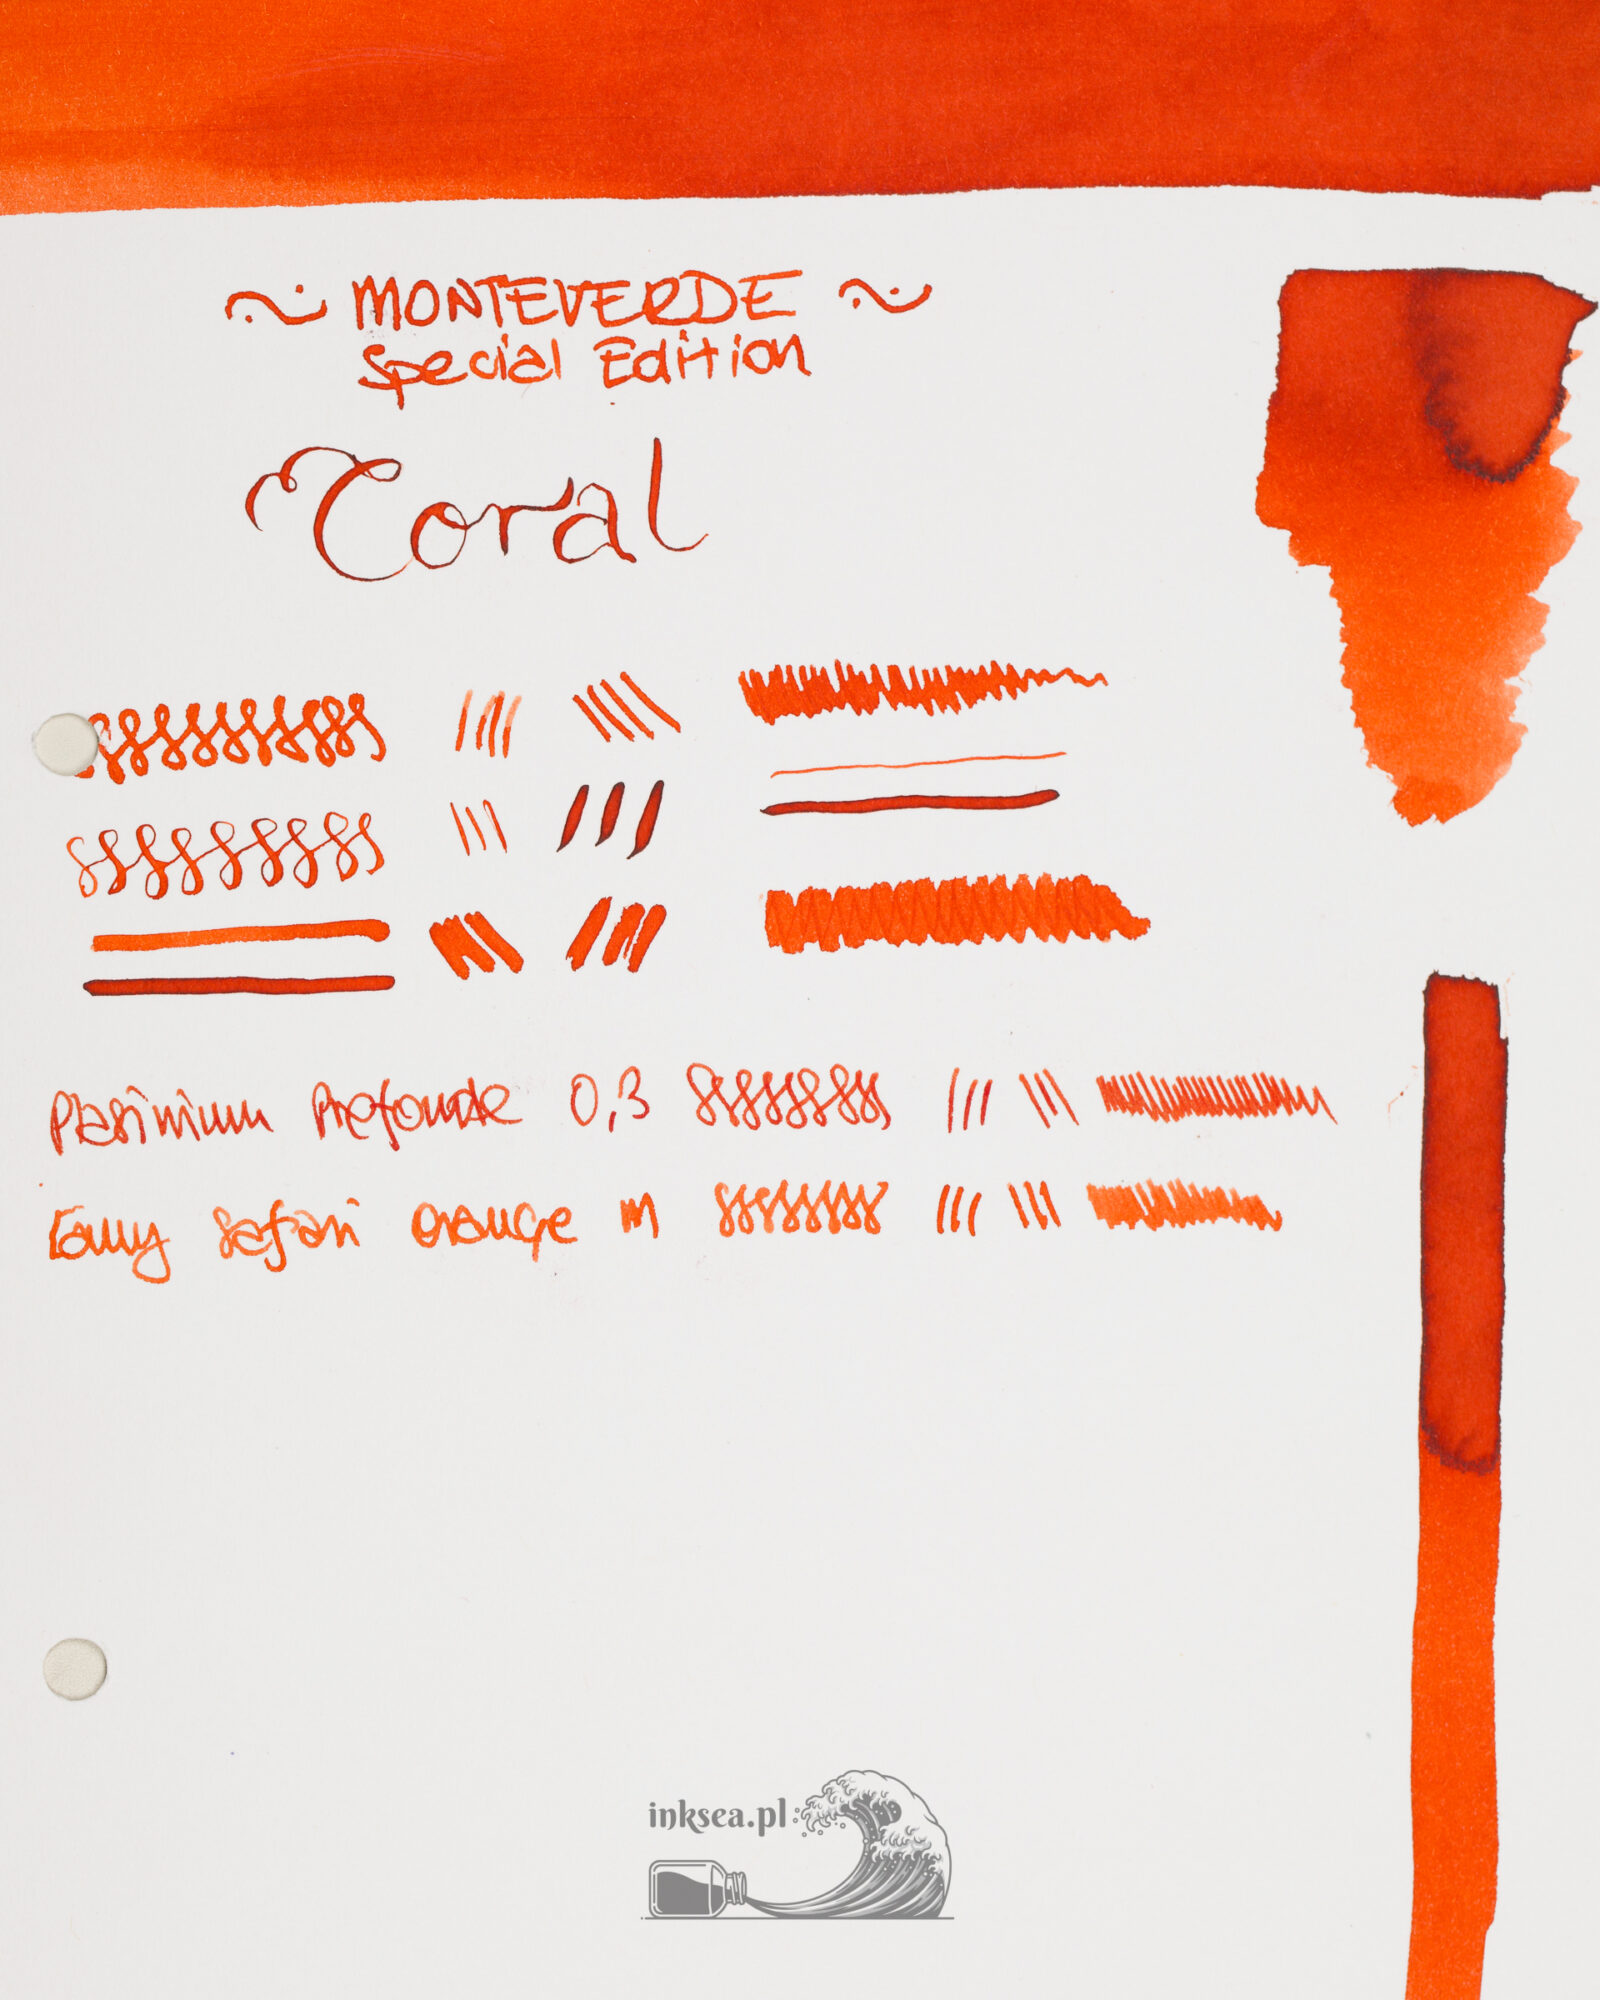 ~ MONTEVERDE ~
Special Edition
Coral
Platinium Prefounte 0,3
Lamy Safari Orange M
inksea.pl